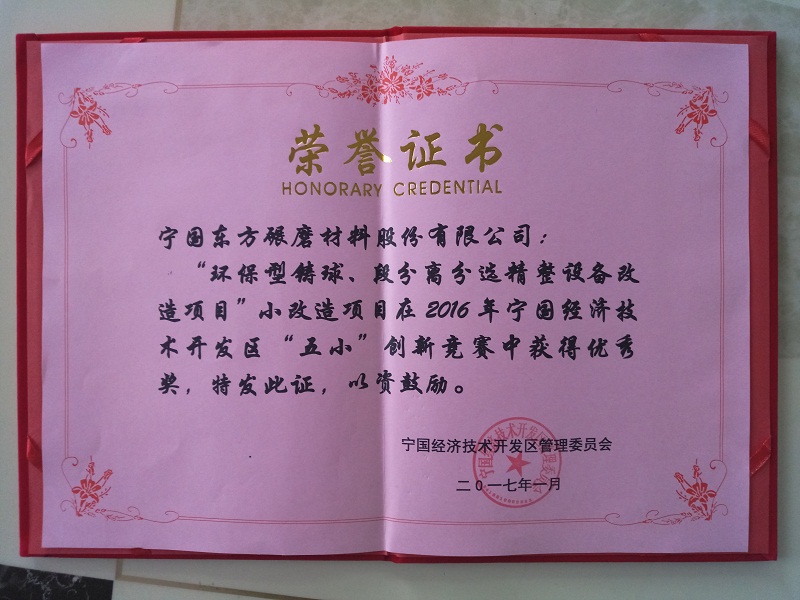 荣誉证书
HONORARY CREDENTIAL
宁国东方碾磨材料股份有限公司：
“环保型铸球、段分离分选精整设备改
造项目”小改造项目在2016年宁国经济技
术开发区“五小”创新竞赛中获得优秀
奖，特发此证，以资鼓励。
宁国经济技术开发区管理委员会
二0一七年一月
宁国经济技术开发区管理委员会